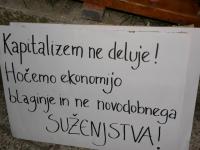 Kapitalizem ne deluje!
Hočemo ekonomijo
blaginje in ne novodobnega
SUŽENJSTVA!